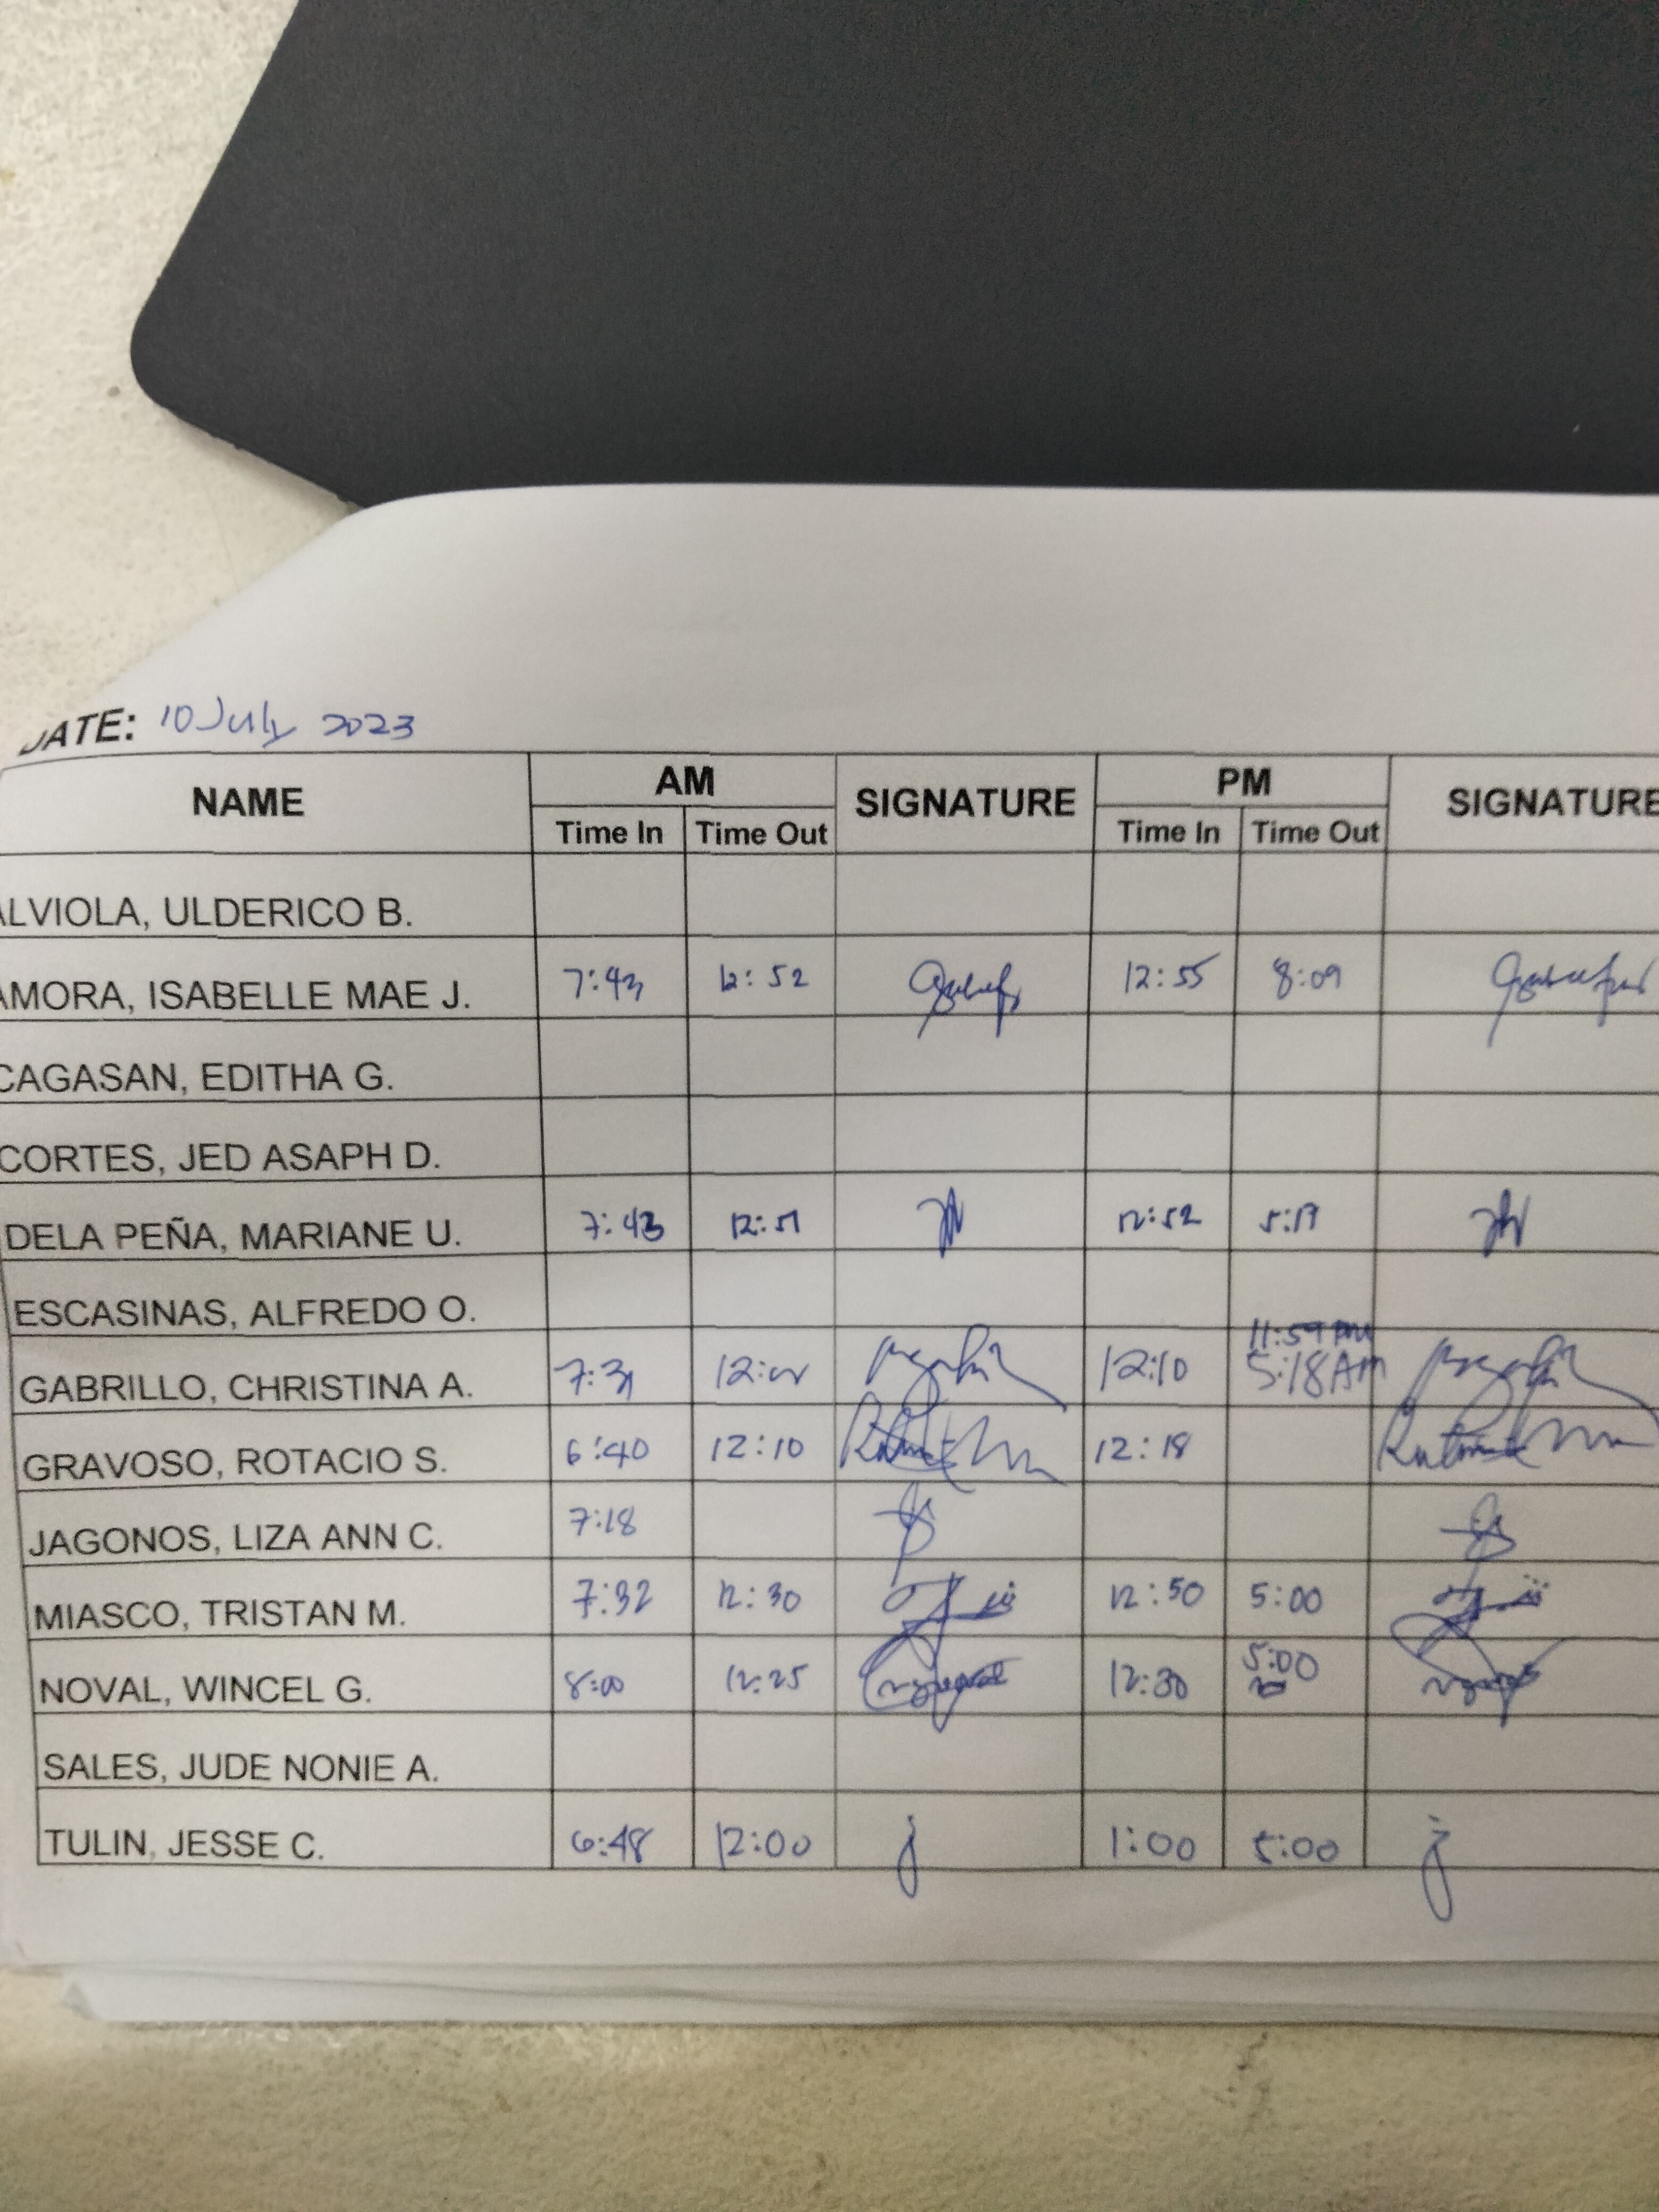 DATE: 10 July 2023
NAME AM SIGNATURE PM SIGNATURE
Time In Time Out Time In Time Out
ALVIOLA, ULDERICO B.
AMORA, ISABELLE MAE J. 7:43 12:52 12:55 8:09
CAGASAN, EDITHA G.
CORTES, JED ASAPH D.
DELA PEÑA, MARIANE U. 7:43 12:51 12:52 5:17
ESCASINAS, ALFREDO O.
11:59 PM
GABRILLO, CHRISTINA A. 7:31 12:10 5:18AM
GRAVOSO, ROTACIO S. 6:40 12:10 12:18
JAGONOS, LIZA ANN C. 7:18
MIASCO, TRISTAN M. 7:32 12:30 12:50 5:00
NOVAL, WINCEL G. 8:00 12:25 12:30 5:00
SALES, JUDE NONIE A.
TULIN, JESSE C. 6:48 12:00 j 1:00 5:00 j